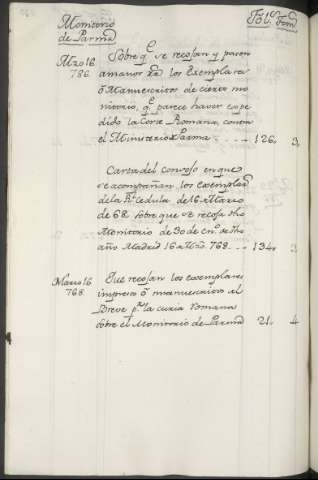 Monitorio Fol.s Tom.
de Parma
Mzo 16 Sobre q.e se recojan y pasen
786. a manos xa los Exemplares
ò Manuescritos de cierto mo
nitorio, q.e parece haver expe
dido la Corte Romana, contra
el Ministerio de Parma 126. 3.
Carta del consejo en que
se acompañan los exemplar.s
de la R.l Cedula de 16 Marzo
de 68 sobre que se recoja dho
Monitorio de 30 de En.o de dho
año Madrid 16 Mzo 768. 134. 3
Marzo 16 Que recojan los exemplares
768. impresos ò manuescritos el
Breve p.r la curia Romana
sobre el Monitorio de Parma 21. 4